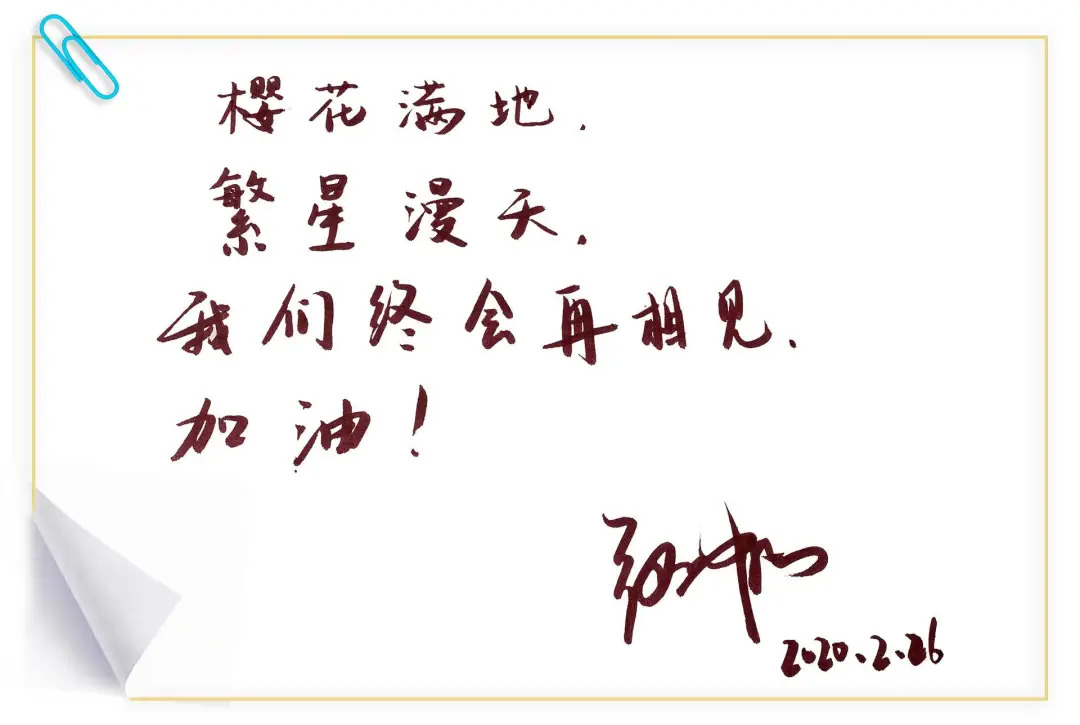 樱花满地.
繁星漫天.
我们终会再相见.
加油!
2020.2.26